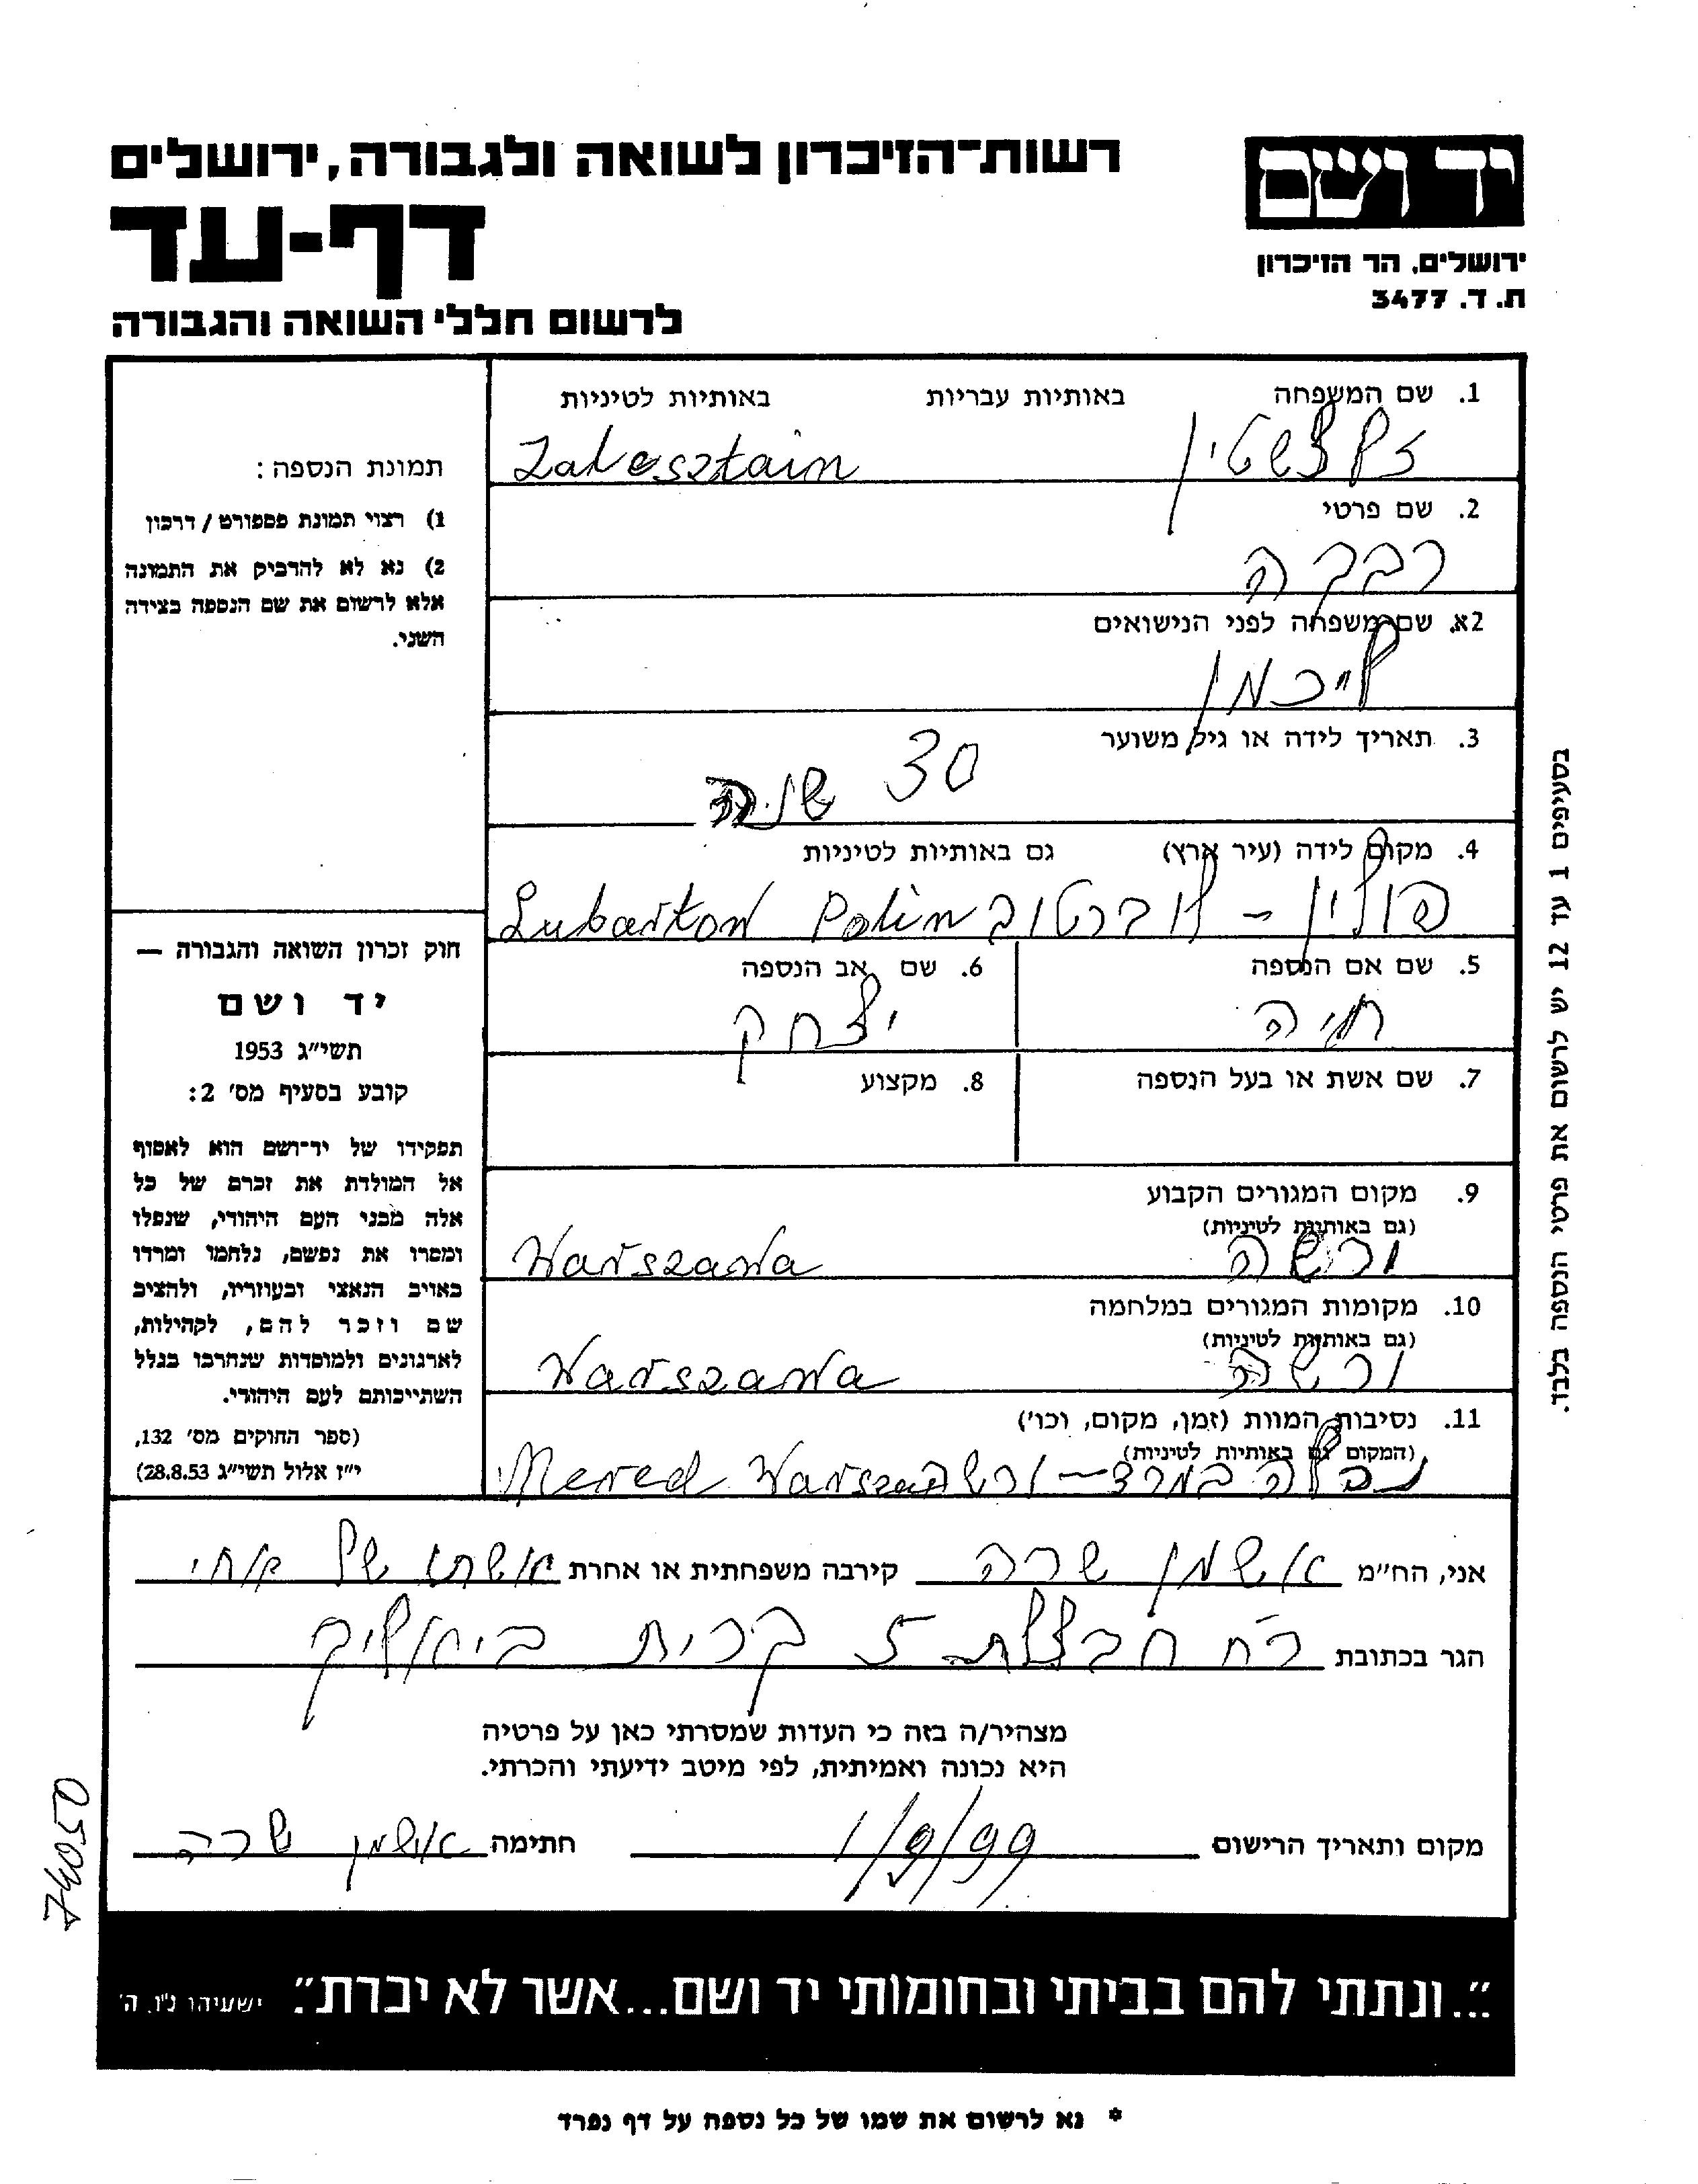 רשות־הזיכרון לשואה ולגבורה, ירושלים
יד ושם
דף-עד
ירושלים, הר הזיכרון
ת. ד. 3477
לרשום חללי השואה והגבורה
1. שם המשפחה באותיות עבריות באותיות לטיניות
Zalcsztain
2. שם פרטי
רבקה
2א. שם משפחה לפני הנישואים
לייכמן
3. תאריך לידה או גיל משוער
30 שנה
4. מקום לידה (עיר ארץ) גם באותיות לטיניות
פולין - לוברטוב Lubartow Polin
5. שם אם הנספה 6. שם אב הנספה
חיה יצחק
7. שם אשת או בעל הנספה 8. מקצוע
9. מקום המגורים הקבוע
(גם באותיות לטיניות)
ורשה Warszawa
10. מקומות המגורים במלחמה
(גם באותיות לטיניות)
ורשה Warszawa
11. נסיבות המוות (זמן, מקום, וכו')
(המקום גם באותיות לטיניות)
נפלה במרד - ורשה Mered Warszawa
תמונת הנספה:
1) רצוי תמונת פספורט / דרכון
2) נא לא להדביק את התמונה
אלא לרשום את שם הנספה בצידה
השני.
חוק זכרון השואה והגבורה —
יד ושם
תשי"ג 1953
קובע בסעיף מס' 2:
תפקידו של יד־ושם הוא לאסוף
אל המולדת את זכרם של כל
אלה מבני העם היהודי, שנפלו
ומסרו את נפשם, נלחמו ומרדו
באויב הנאצי ובעוזריו, ולהציב
שם וזכר להם, לקהילות,
לארגונים ולמוסדות שנחרבו בגלל
השתייכותם לעם היהודי.
(ספר החוקים מס' 132,
י"ז אלול תשי"ג 28.8.53)
בסעיפים 1 עד 12 יש לרשום את פרטי הנספה בלבד.
אני, הח"מ אושמן שרה קירבה משפחתית או אחרת אשתו של אחי
הגר בכתובת רח חבצלת 5 קרית ביאליק
מצהיר/ה בזה כי העדות שמסרתי כאן על פרטיה
היא נכונה ואמיתית, לפי מיטב ידיעתי והכרתי.
מקום ותאריך הרישום 1/9/99 חתימה אושמן שרה
74050
"...ונתתי להם בביתי ובחומותי יד ושם...אשר לא יכרת". ישעיהו נ"ו, ה'
* נא לרשום את שמו של כל נספה על דף נפרד